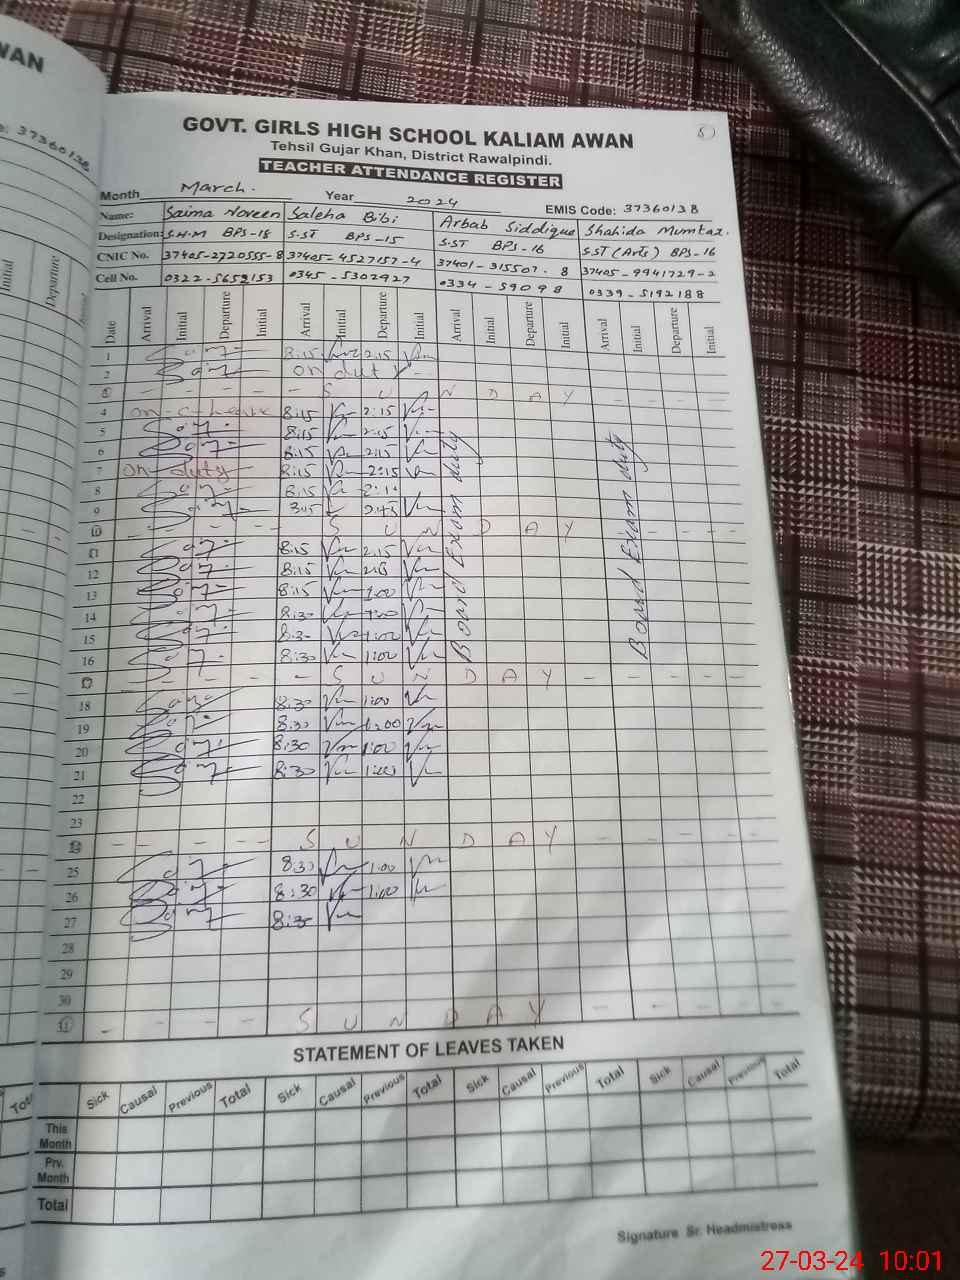 WAN
37360138
5
GOVT. GIRLS HIGH SCHOOL KALIAM AWAN
Tehsil Gujar Khan, District Rawalpindi.
TEACHER ATTENDANCE REGISTER
Month March. Year 2024 EMIS Code: 37360138
Name: Saima Noreen Saleha Bibi Arbab Siddique Shahida Mumtaz.
Designation: S.H.M BPS-18 S.ST BPS-15 S.ST BPS-16 S.ST (Arts) BPS-16
CNIC No. 37405-2720555-8 37405-4527157-4 37401-315507.8 37405-9941729-2
Cell No. 0322-5652153 0345-5302927 0334-59098 0339-5192188
Initial Departure
Date Arrival Initial Departure Initial Arrival Initial Departure Initial Arrival Initial Departure Initial Arrival Initial Departure Initial
1 8:15 2:15
2 on duty
3 - - - - S U N D A Y - - - -
4 on-c-leave 8:15 2:15
5 8:15 2:15
6 8:15 2:15
7 on duty 8:15 2:15
8 8:15
9
Board Exam duty
Board Exam duty
10 - - - - S U N D A Y - - - -
11 8:15 2:15
12 8:15
13 8:15 1:00
14 8:30
15 8:30 1:00
16 8:30 1:00
17 - - - - S U N D A Y - - - -
18 8:30 1:00
19 8:30 1:00
20 8:30 1:00
21 8:30 1:00
22
23
24 - - - - S U N D A Y - - - -
25 8:30 1:00
26 8:30 1:00
27 8:30
28
29
30
31 - - - - S U N D A Y - - - -
STATEMENT OF LEAVES TAKEN
Sick Causal Previous Total Sick Causal Previous Total Sick Causal Previous Total Sick Causal Previous Total
This Month
Prv. Month
Total
Signature Sr. Headmistress
27-03-24 10:01